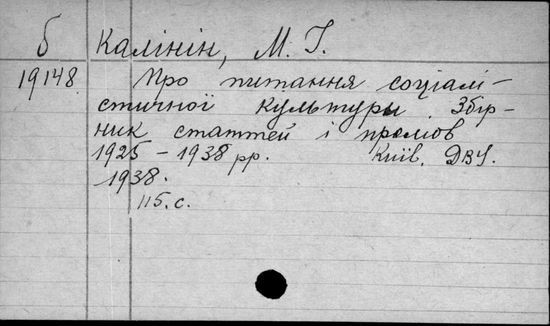 б Калінін, М. І.
19148. Про питання соціалі-
стичної культури. Збір-
ник статтей і промов
1925 – 1938 рр. Київ. ДВУ.
1938.
115. с.